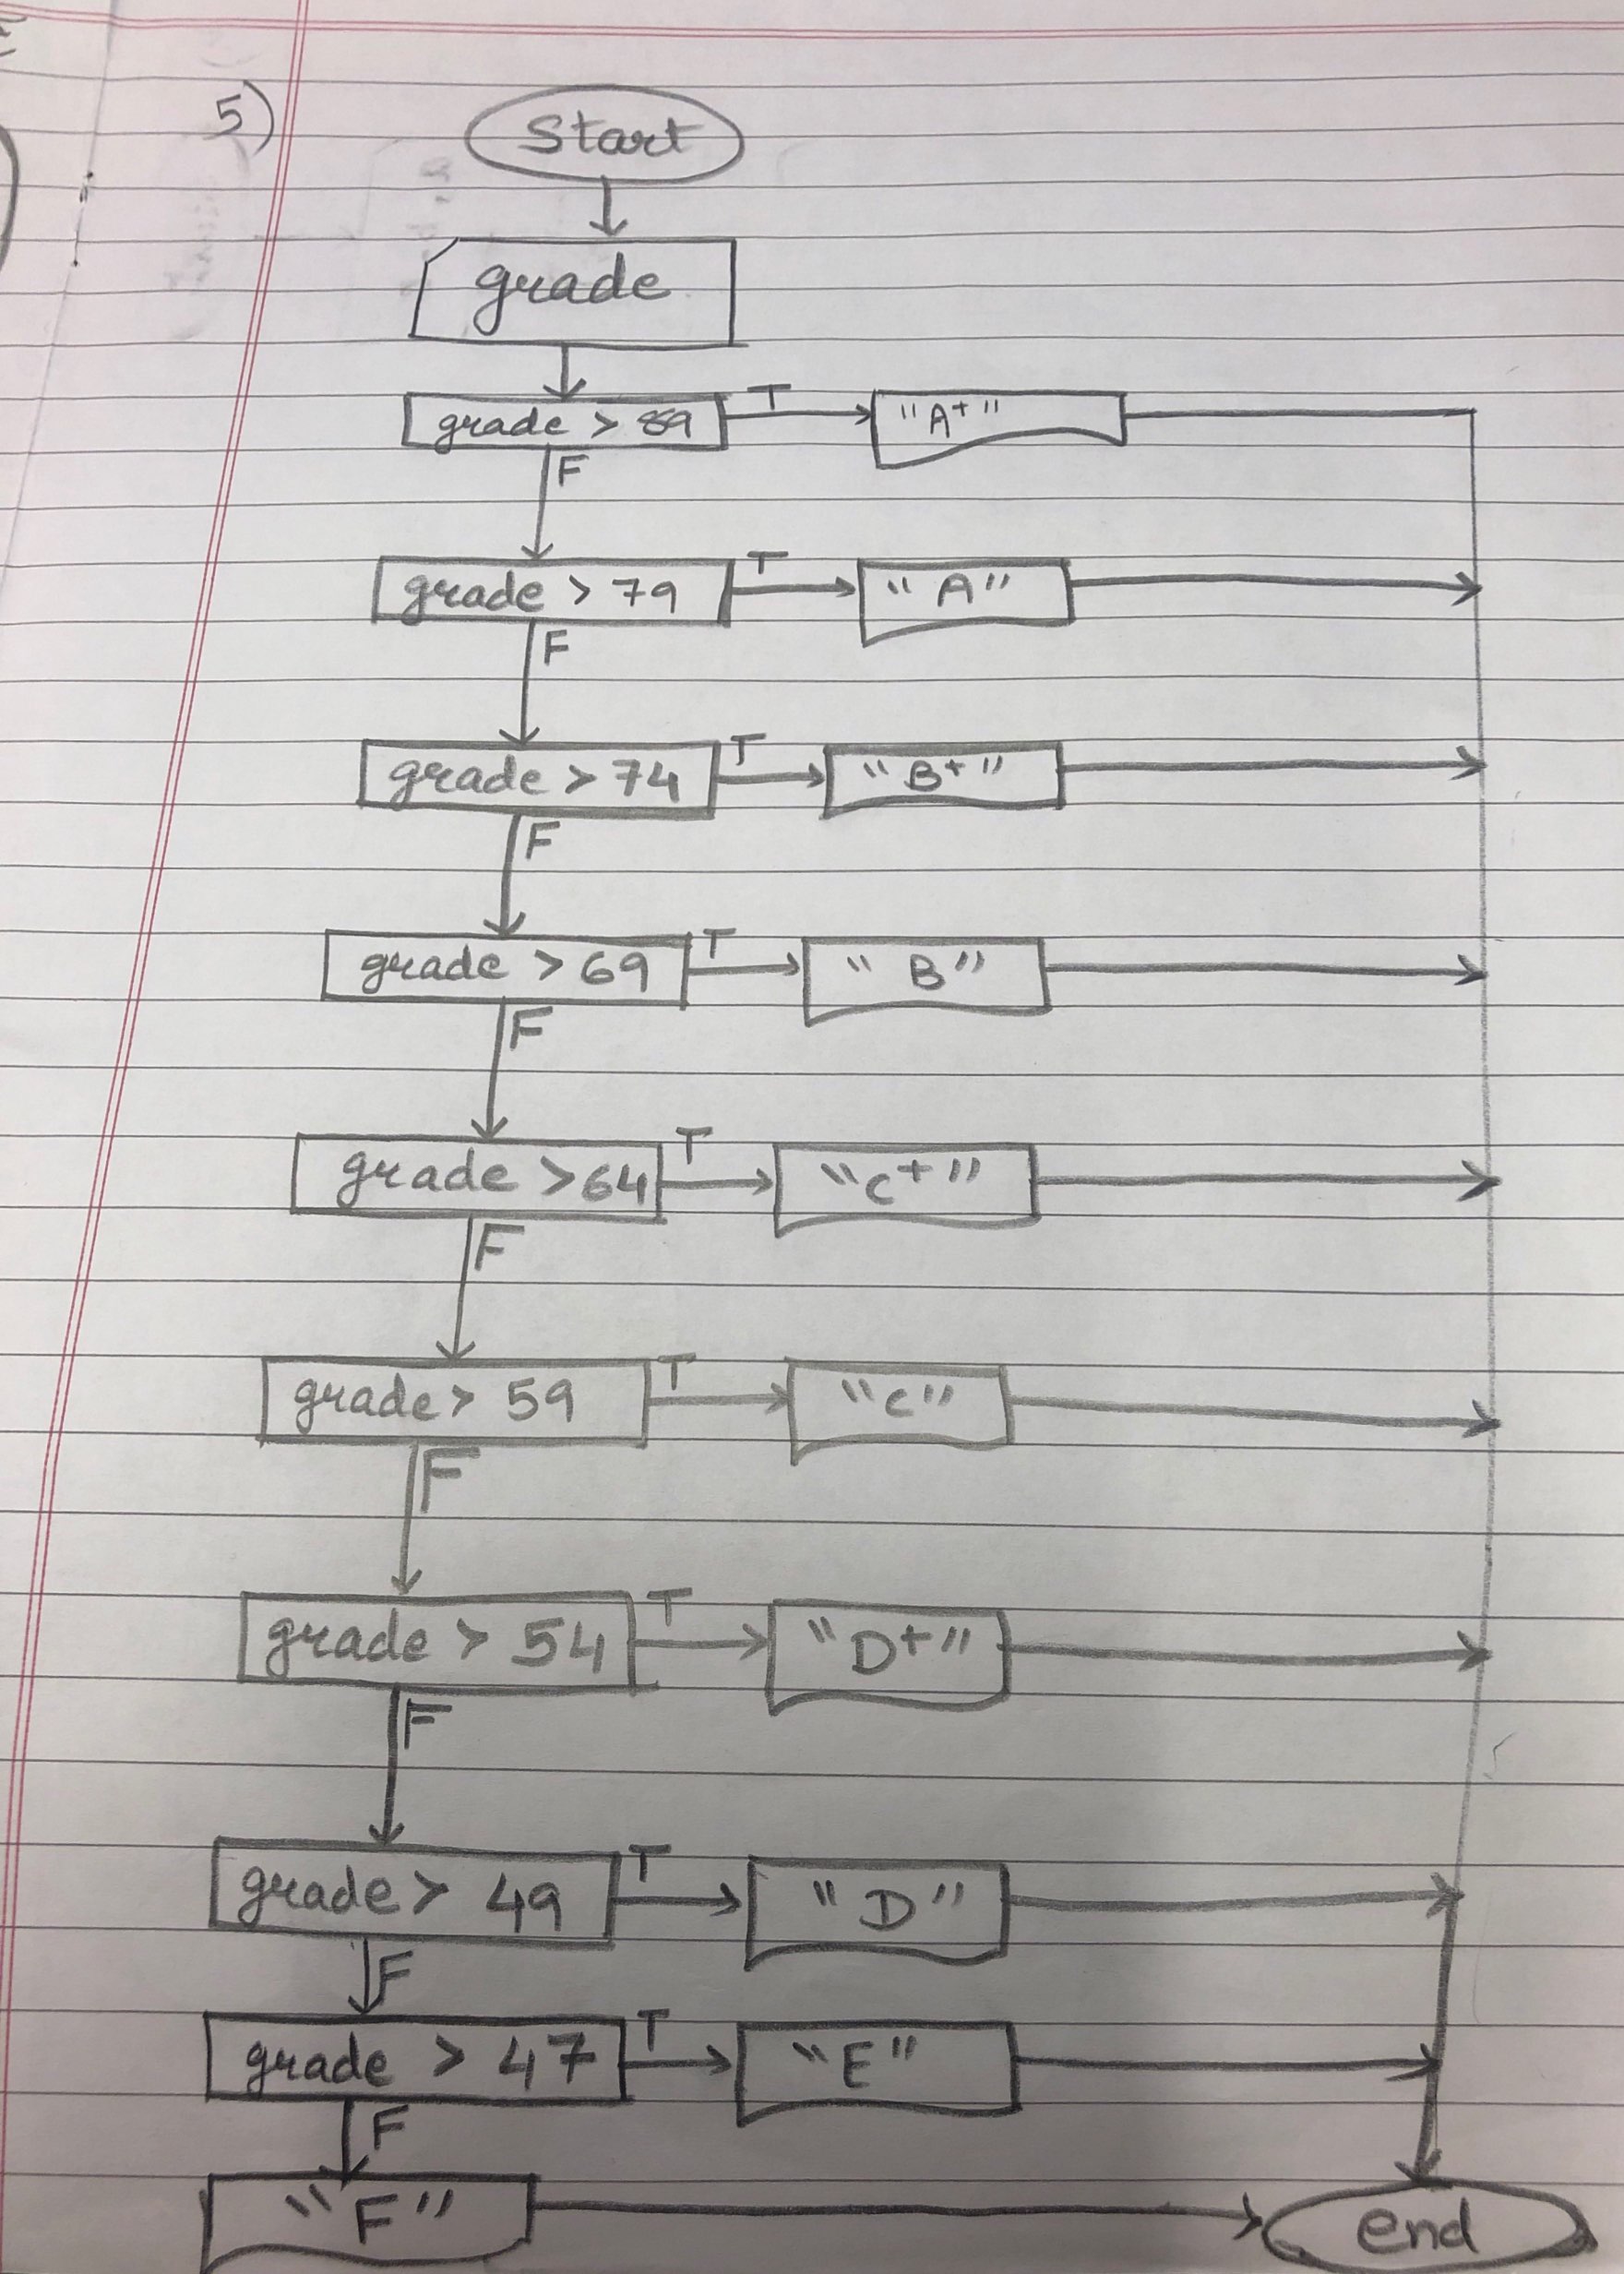 5)
Start
grade
grade > 89 T "A+"
F
grade > 79 T "A"
F
grade > 74 T "B+"
F
grade > 69 T "B"
F
grade > 64 T "C+"
F
grade > 59 T "C"
F
grade > 54 T "D+"
F
grade > 49 T "D"
F
grade > 47 T "E"
F
"F" end